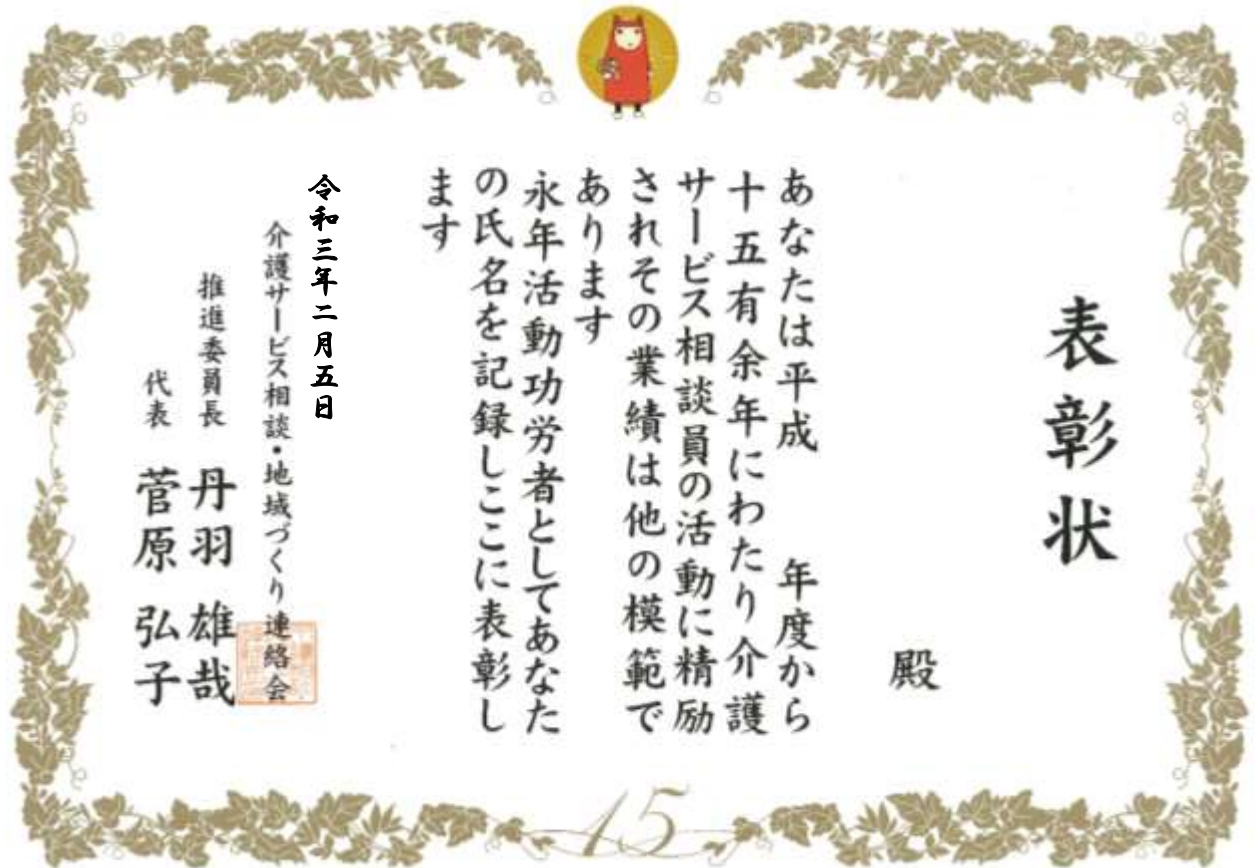 表彰状
殿
あなたは平成 年度から
十五有余年にわたり介護
サービス相談員の活動に精励
されその業績は他の模範で
あります
永年活動功労者としてあなた
の氏名を記録しここに表彰し
ます
令和三年二月五日
介護サービス相談・地域づくり連絡会
推進委員長 丹羽 雄哉
代表 菅原 弘子
15